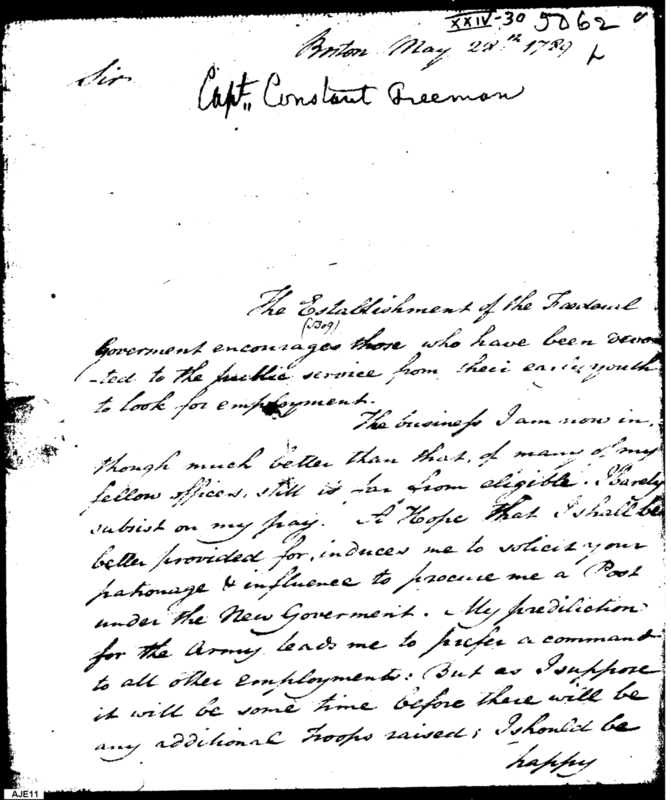 XXIV-30 5062
Boston May 28th 1789
Sir
Capt,, Constant Freeman
The Establishment of the Foederal
(Bog)
Goverment encourages those who have been devo
-ted to the public service from their early youth
to look for employment.
The business I am now in,
though much better than that, of many of my
fellow officers, still is far from eligible. I barely
subsist on my pay. A Hope that I shall be
better provided for, induces me to solicit your
patronage & influence to procure me a Post
under the New Goverment. My prediliction
for the Army leads me to prefer a command
to all other employments: But as I suppose
it will be some time before there will be
any additional Troops raised; I should be
happy
AJE11